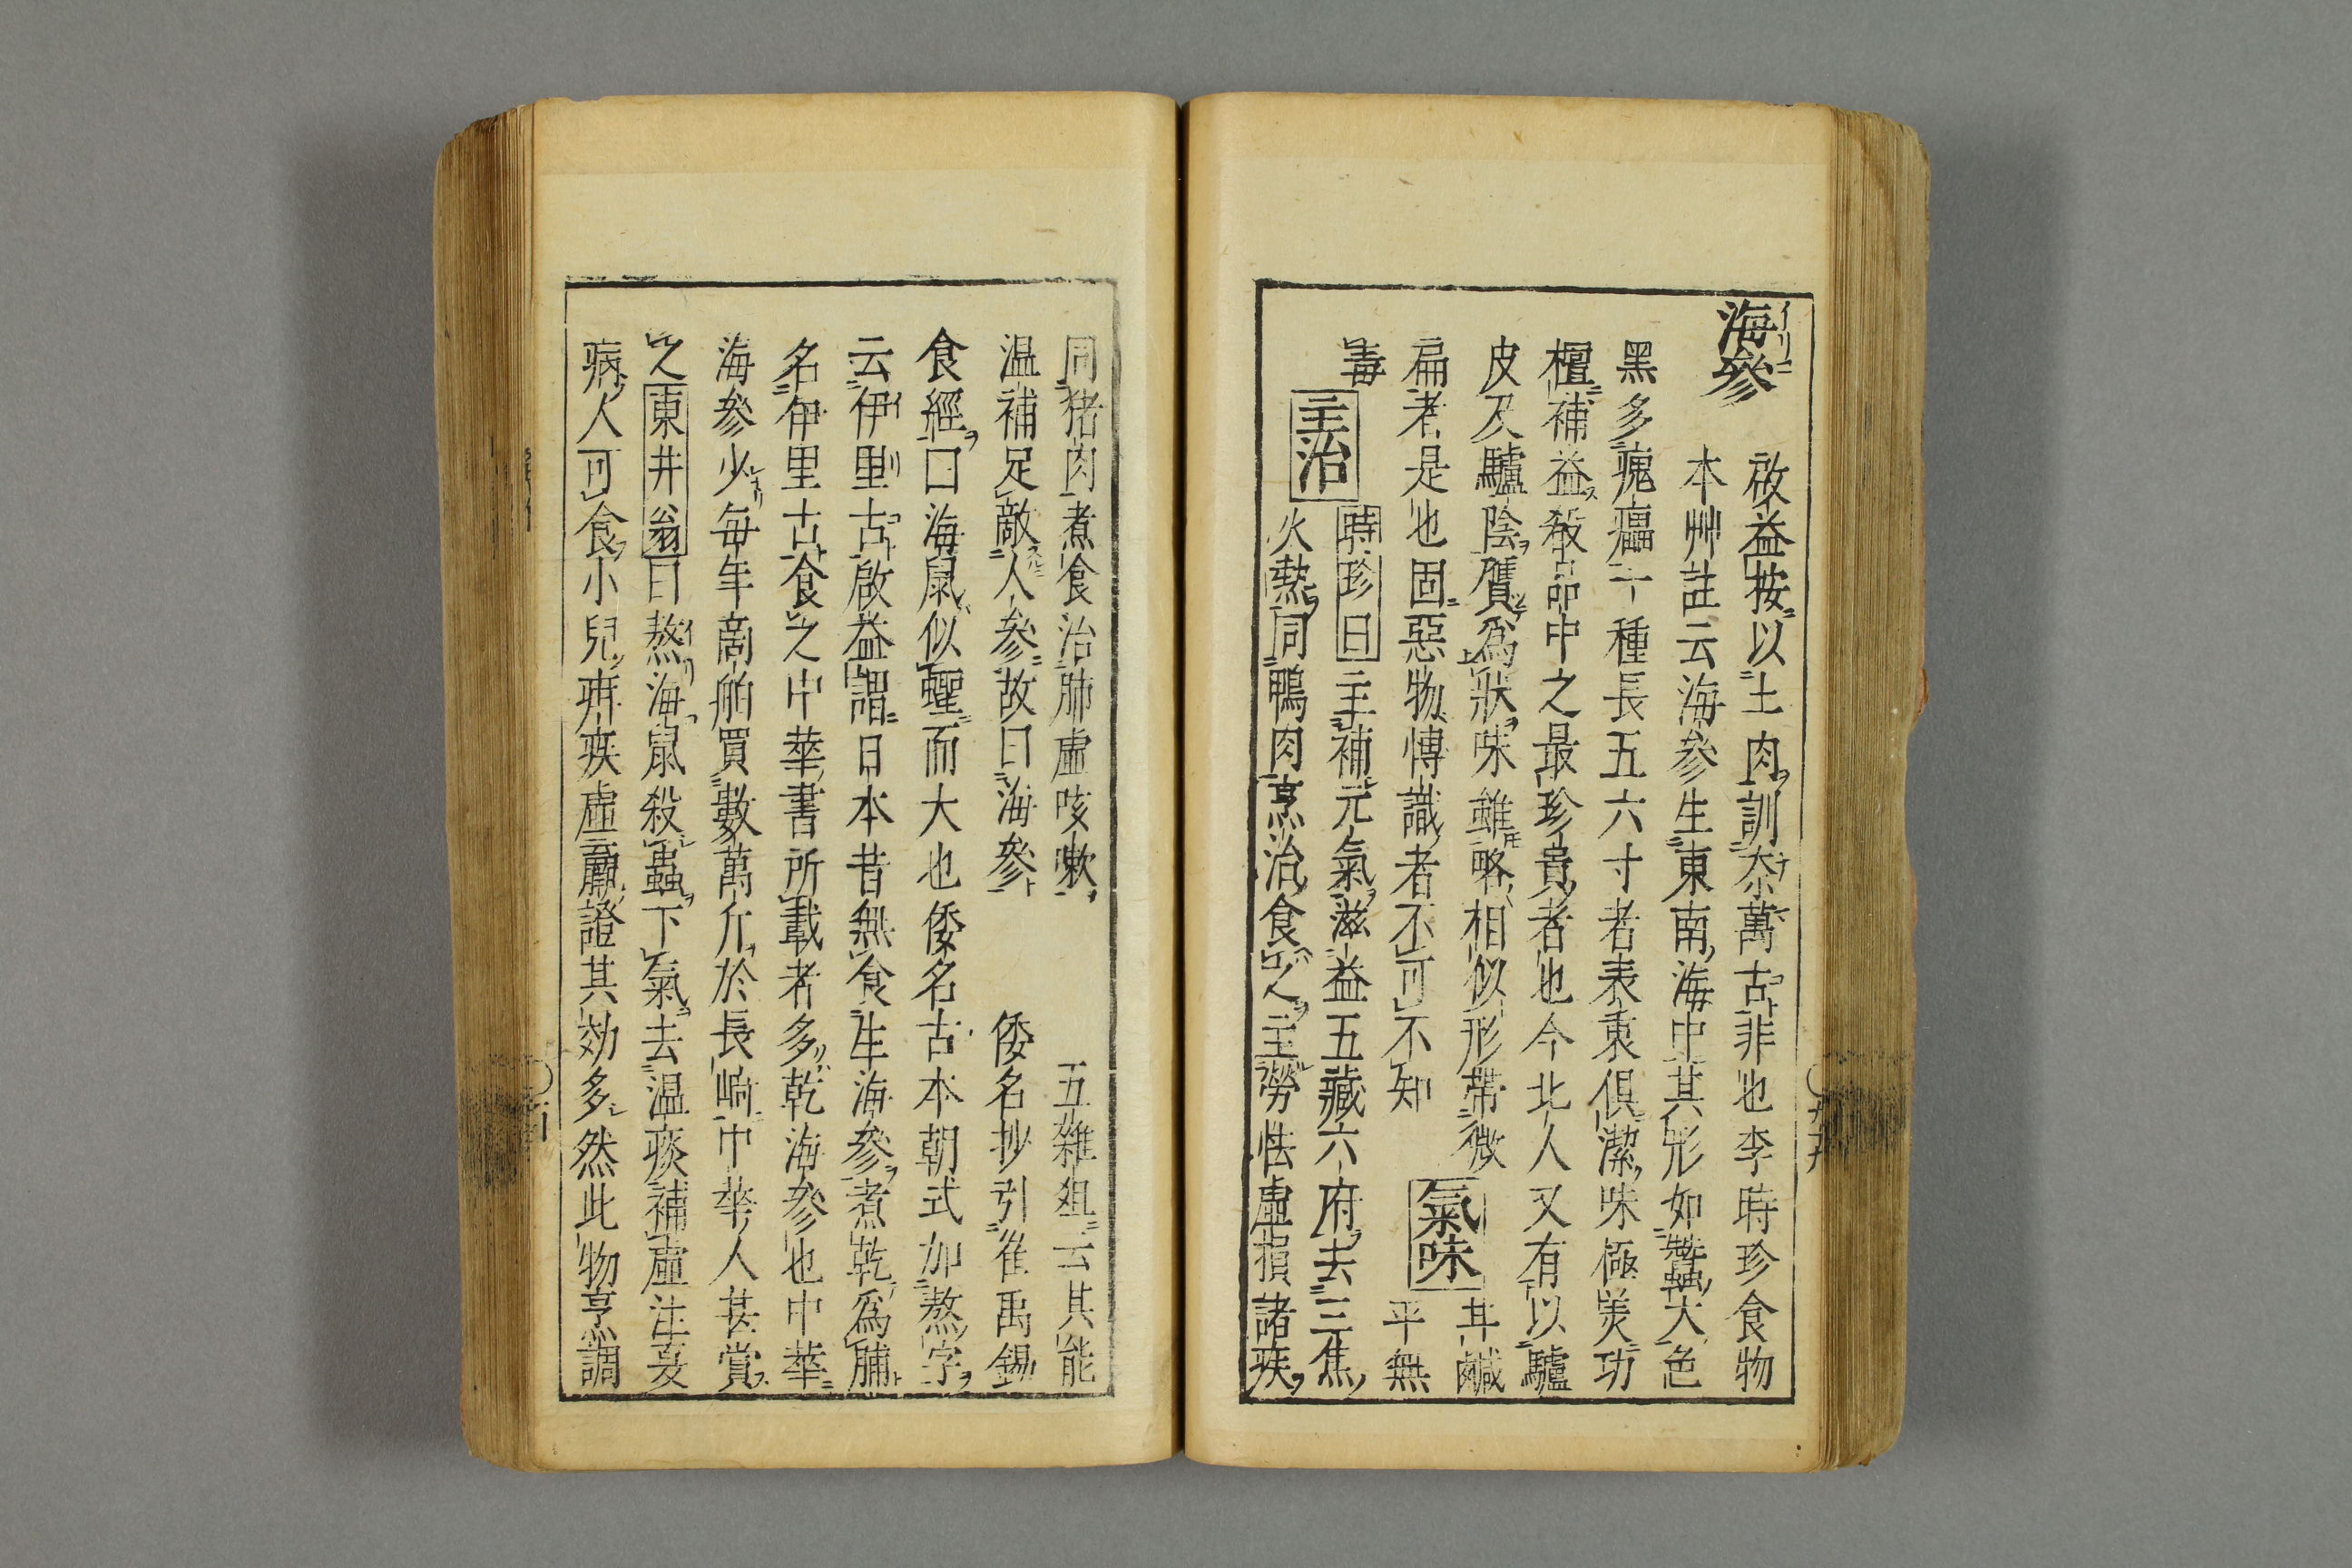 海參
啟益按以土肉訓奈萬古非也李時珍食物
本艸註云海參生東南海中其形如蠶大色
黑多瘣癗一種長五六寸者表裏俱潔味極美功
檀補益殺品中之最珍貴者也今北人又有以驢
皮及驢陰贋爲狀味雖略相似形帶微
扁者是也固惡物愽識者不可不知
氣味
甘鹹
平無
毒
主治
時珍曰主補元氣滋益五藏六府去三焦
火熱同鴨肉烹治食之主勞怯虛損諸疾
同猪肉煮食治肺虛咳嗽
五雜俎云其能
温補足敵人參故曰海參
倭名抄引崔禹錫
食經曰海鼠似蛭而大也倭名古本朝式加熬字
云伊里古啟益謂日本昔無食生海參煮乾爲脯
名伊里古食之中華書所載者多乾海參也中華
海參少每年商舶買數萬斤於長崎中華人甚賞
之東井翁曰熬海鼠殺蟲下氣去温痰補虛注夏
病人可食小兒疳疾虛羸證其効多然此物烹調